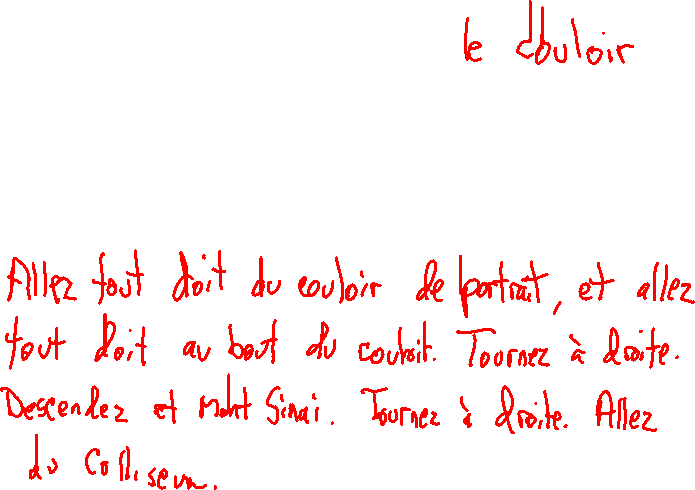 le couloir
Allez tout doit du couloir de portrait, et allez
tout doit au bout du couloit. Tournez à droite.
Descendez et Mont Sinai. Tournez à droite. Allez
du Colliseum.